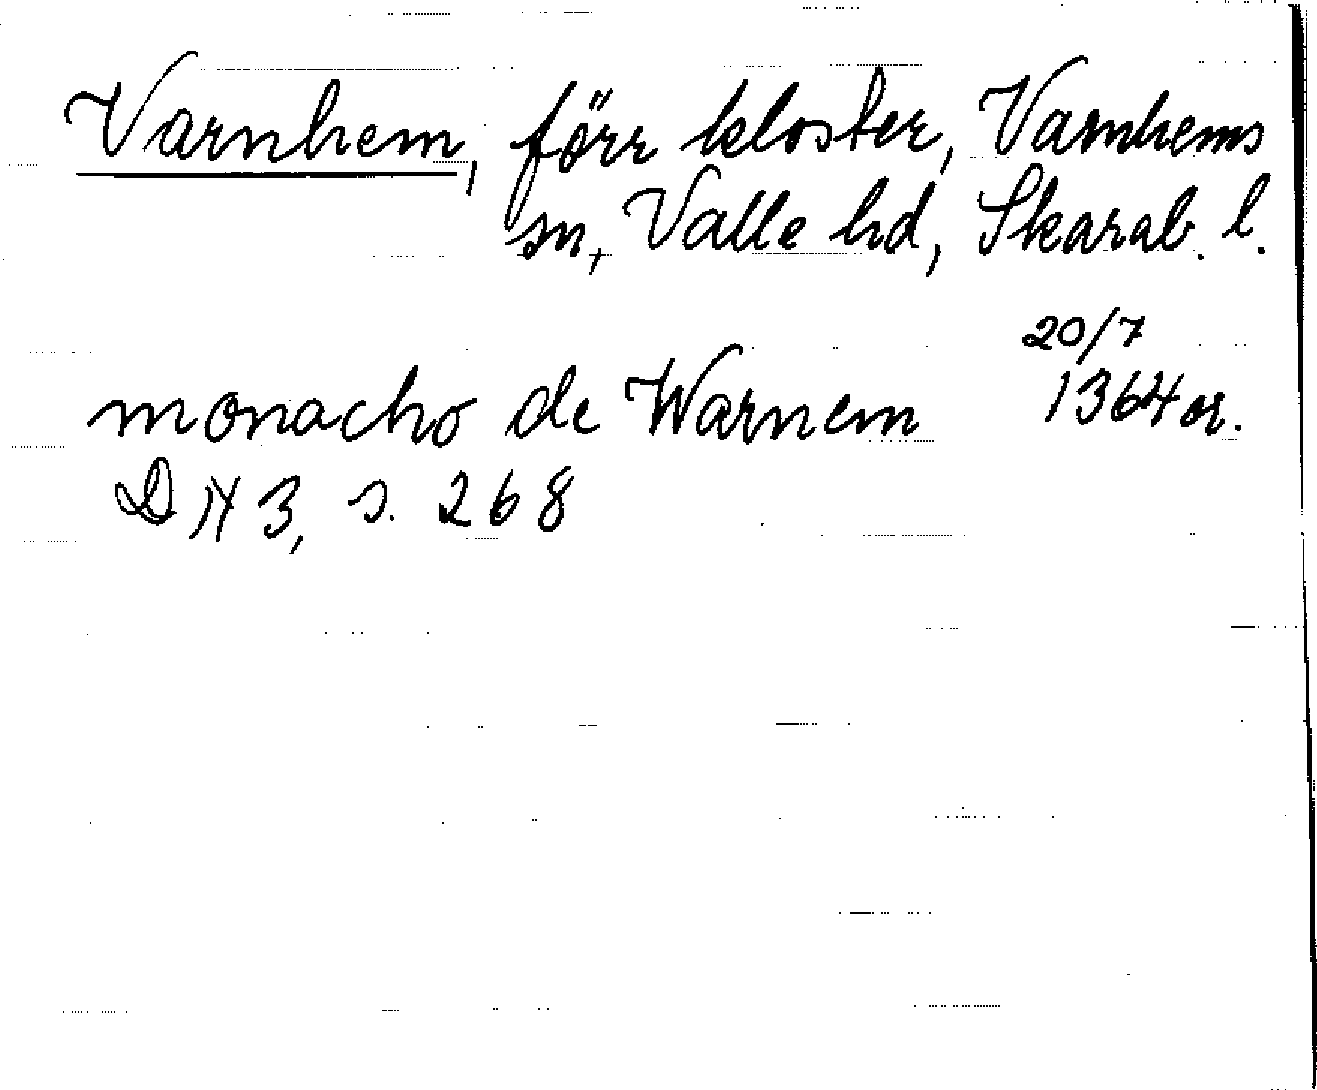 Varnhem, förr kloster, Varnhems
sn, Valle hd, Skarab. l.
20/7
monacho de Warnem 1364 or.
DN 3, s. 268